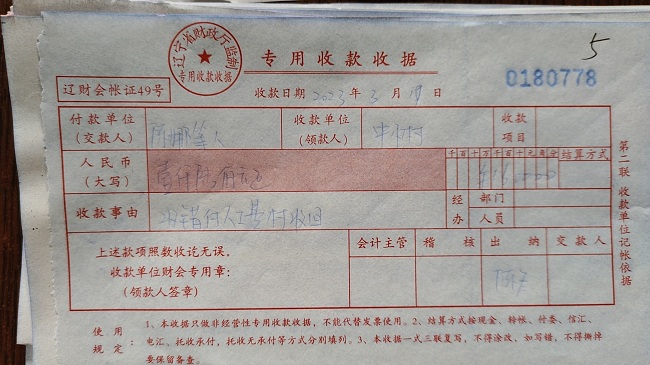 5
辽宁省财政厅监制
专用收款收据
专用收款收据
0180778
辽财会帐证49号
收款日期 2023 年 3 月 日
付款单位
(交款人)
等人
收款单位
(领款人)
中心村
收款
项目
人民币
(大写)
壹仟 佰元
千百十万千百十元角分
结算方式
收款事由
错付人工费村收回
经办
部门
人员
上述款项照数收讫无误。
收款单位财会专用章:
(领款人签章)
会计主管
稽核
出纳
交款人
第二联 收款单位记帐依据
使用规定:
1、本收据只做非经营性专用收款收据,不能代替发票使用。2、结算方式按现金、转帐、付委、信汇、
电汇、托收承付,托收无承付等方式分别填列。3、本收据一式三联复写,不得涂改,如写错,不得撕掉
要保留备查。